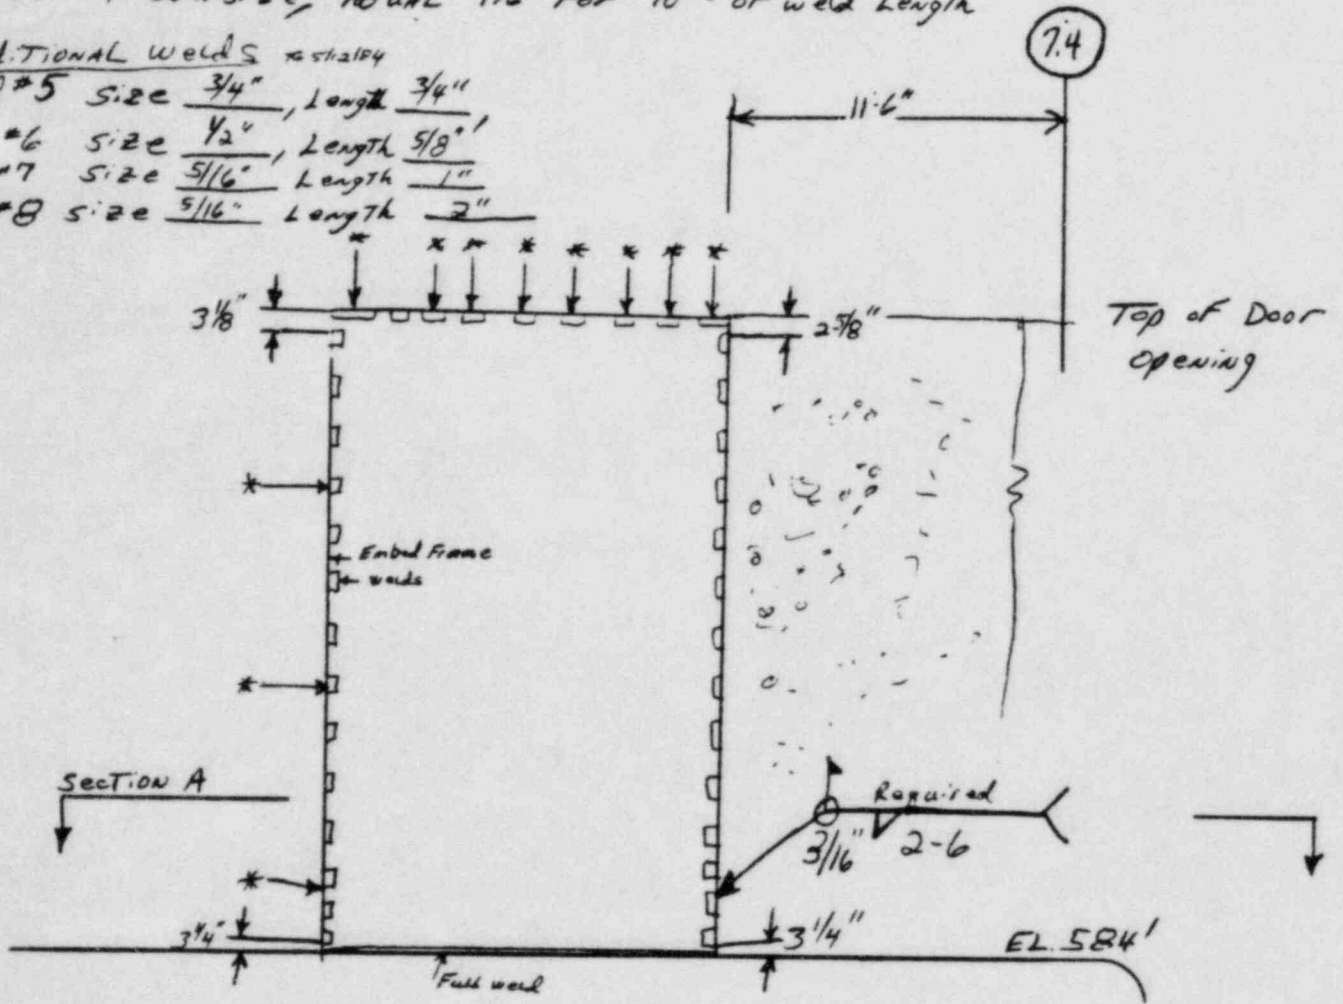 size, 1/16 for 10" of weld Length
7.4
ITIONAL Welds
#5 Size 3/4", Length 3/4"
#6 Size 1/2", Length 5/8"
#7 Size 5/16" Length 1"
#8 size 5/16" Length 2"
11'-6"
* * * * * * * *
3 1/8"
2 5/8"
Top of Door
Opening
*
Embed Frame
welds
*
Section A
Required
3/16" 2-6
*
3 1/4"
3 1/4"
EL. 584'
Full weld